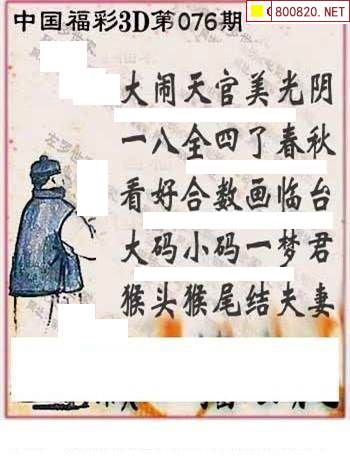 中国福彩3D第076期
800820.NET
大闹天官美光阴
一八全四了春秋
看好合数画临台
大码小码一梦君
猴头猴尾结夫妻